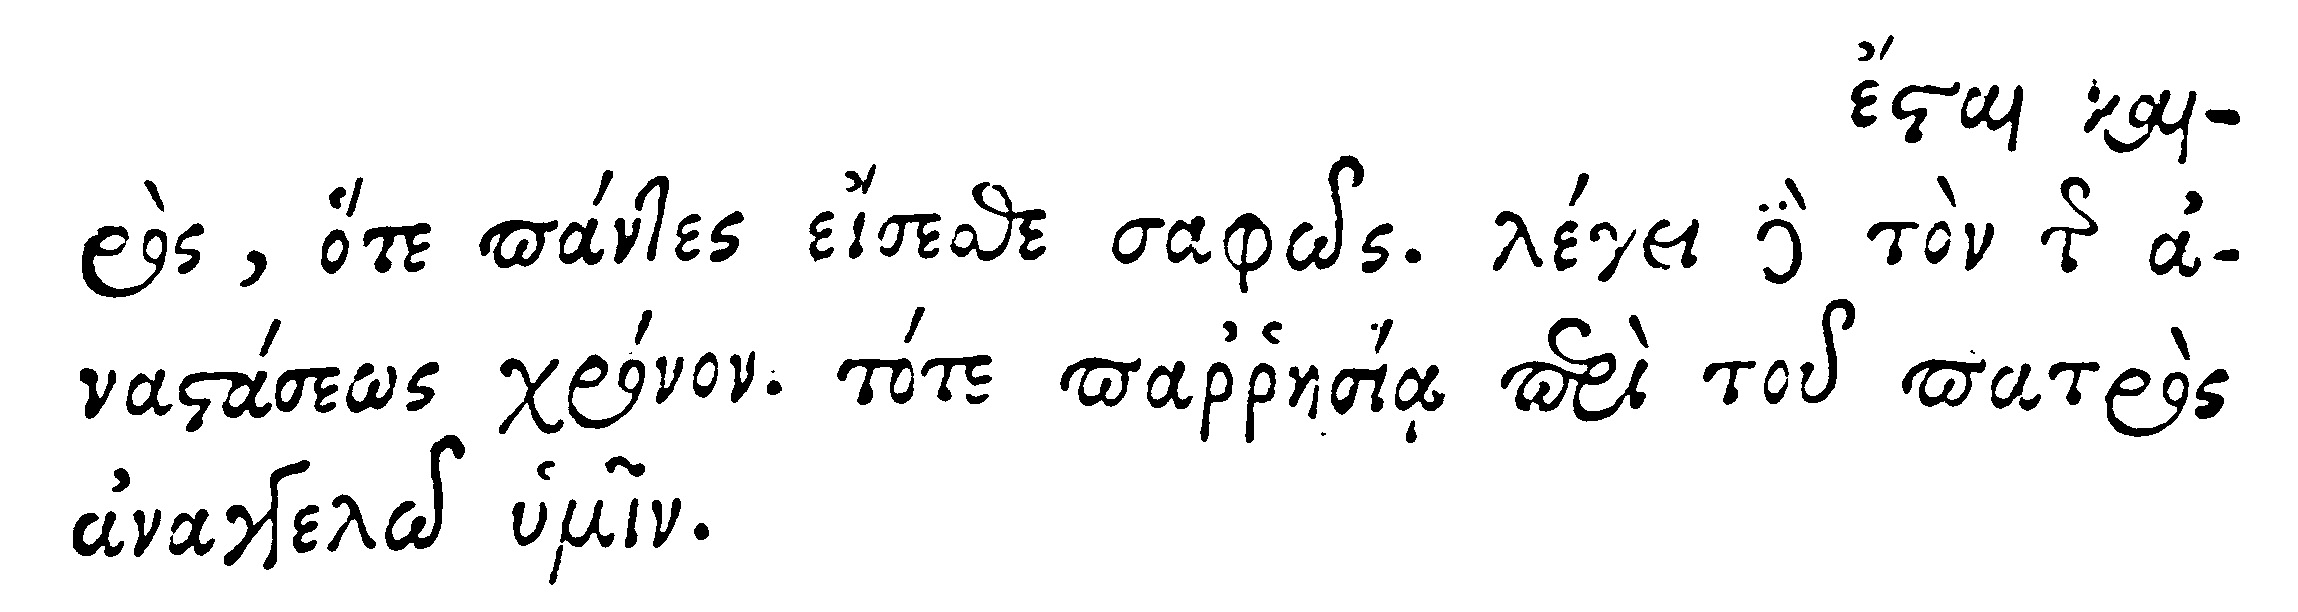 ἔσται και-
ρὸς, ὅτε πάντες εἴσεσθε σαφῶς. λέγει δὲ τὸν τῆς ἀ-
ναστάσεως χρόνον. τότε παῤῥησίᾳ περὶ τοῦ πατρὸς
ἀναγγελῶ ὑμῖν.